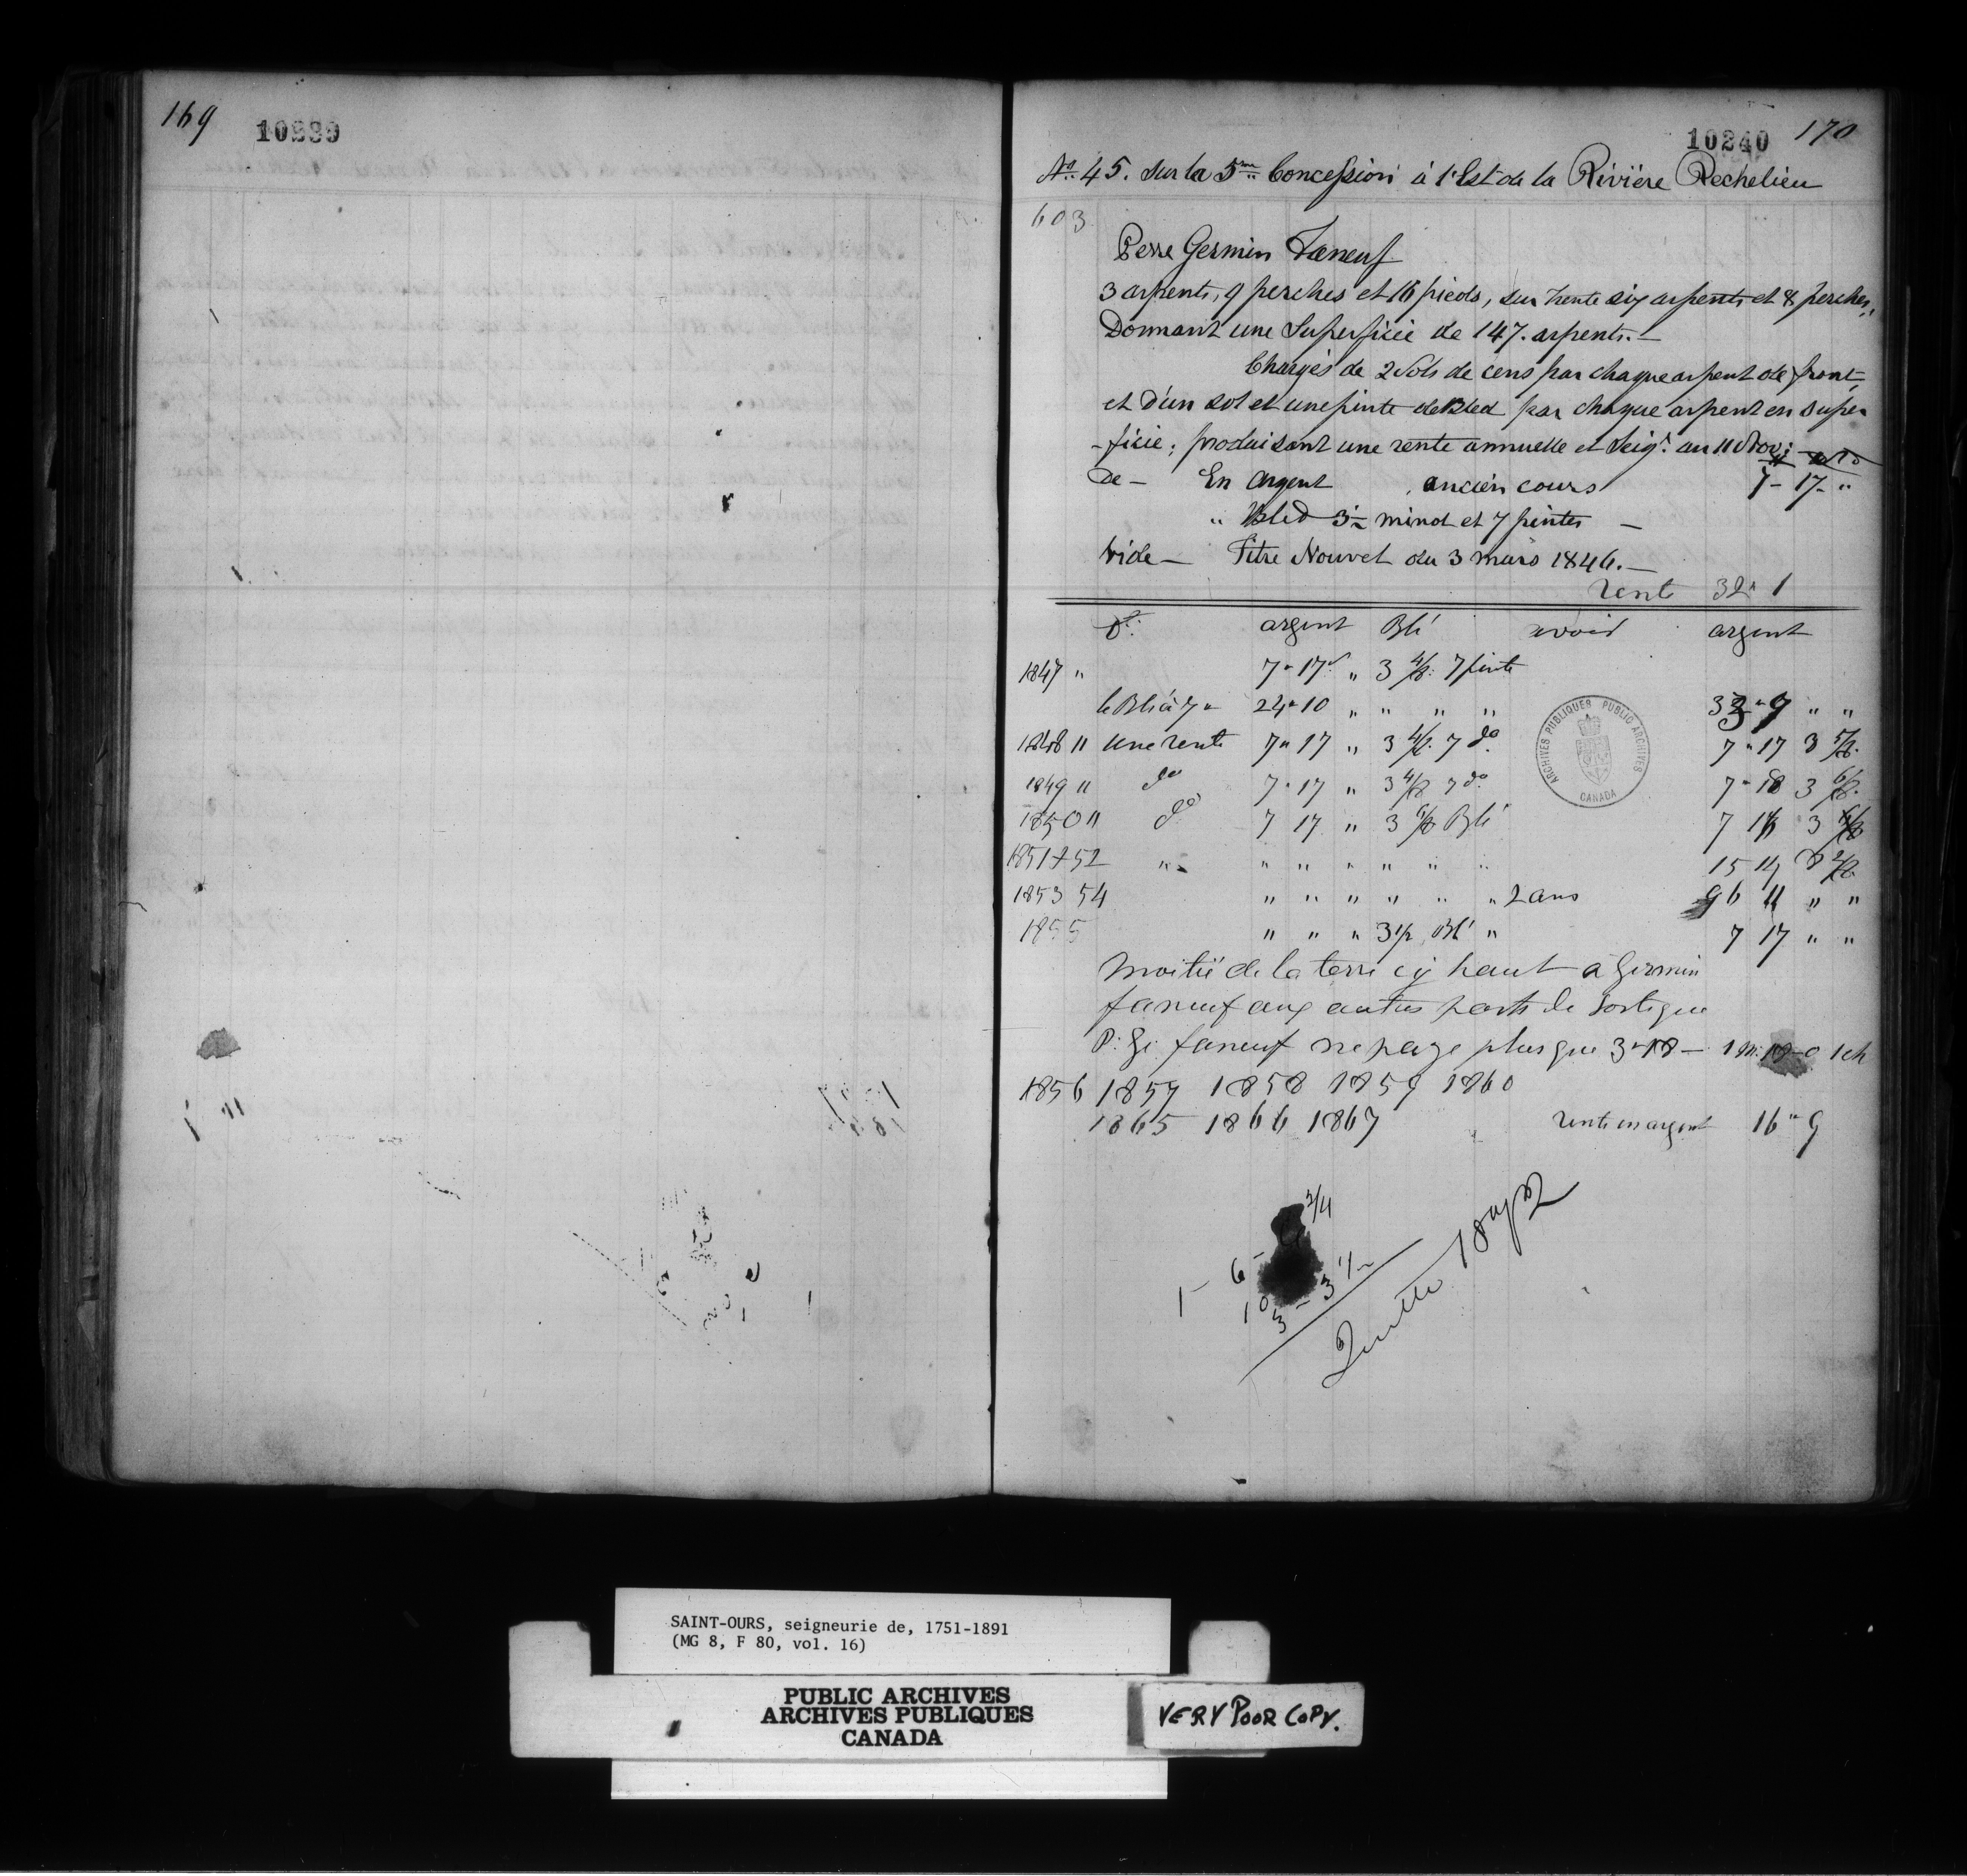 169
10239
10240
170
No. 45. Sur la 5me Concession à l'Est de la Rivière Rechelieu
603
Perre Germin Faneuf
3 arpents, 9 perches et 16 pieds, sur trente six arpents et 8 perches,
Donnant une Superficie de 147. arpents.—
Chargés de 2 Sols de cens par chaque arpent de front,
et d'un sol et une pinte de Bled par chaque arpent en super
-ficie; produisant une rente annuelle et Seigr. au 11 Nov:
De — En Argent ancien cours 7 - 17 - "
" Bled 3 ½ minot et 7 pintes —
Vide — Titre Nouvel du 3 mars 1846.—
Rente 32 " 1
Dt. argent Blé avoir argent
1847 " 7 " 17 " 3 4/8. 7 pinte
le Blé à 7 " 24 " 10 " " " " 33 " 9 " "
1848 " une rente 7 " 17 " 3 4/8. 7 do 7 " 17 3 5/8.
1849 " do 7 " 17 " 3 4/8 7 do. 7 " 18 3 6/8.
1850 " do 7 17 " 3 6/8 Blé 7 3
1851 + 52 " " " " " " " 15 14 8 2/8.
1853 54 " " " " " " 2 ans 96 11 " "
1855 " " " 3 1/2 Blé " 7 17 " "
Moitié de la terre cy haut à Germin
faneuf aux autres parts de Sortigue
P: Ge: faneuf ne paye plus que 3 " 18 —
1856 1857 1858 1859 1860
1865 1866 1867 rente en argent 16 " 9
3/4
1 - 6 -
10
3 - 3
SAINT-OURS, seigneurie de, 1751-1891
(MG 8, F 80, vol. 16)
PUBLIC ARCHIVES
ARCHIVES PUBLIQUES
CANADA
VERY POOR COPY.
ARCHIVES PUBLIQUES PUBLIC ARCHIVES
CANADA